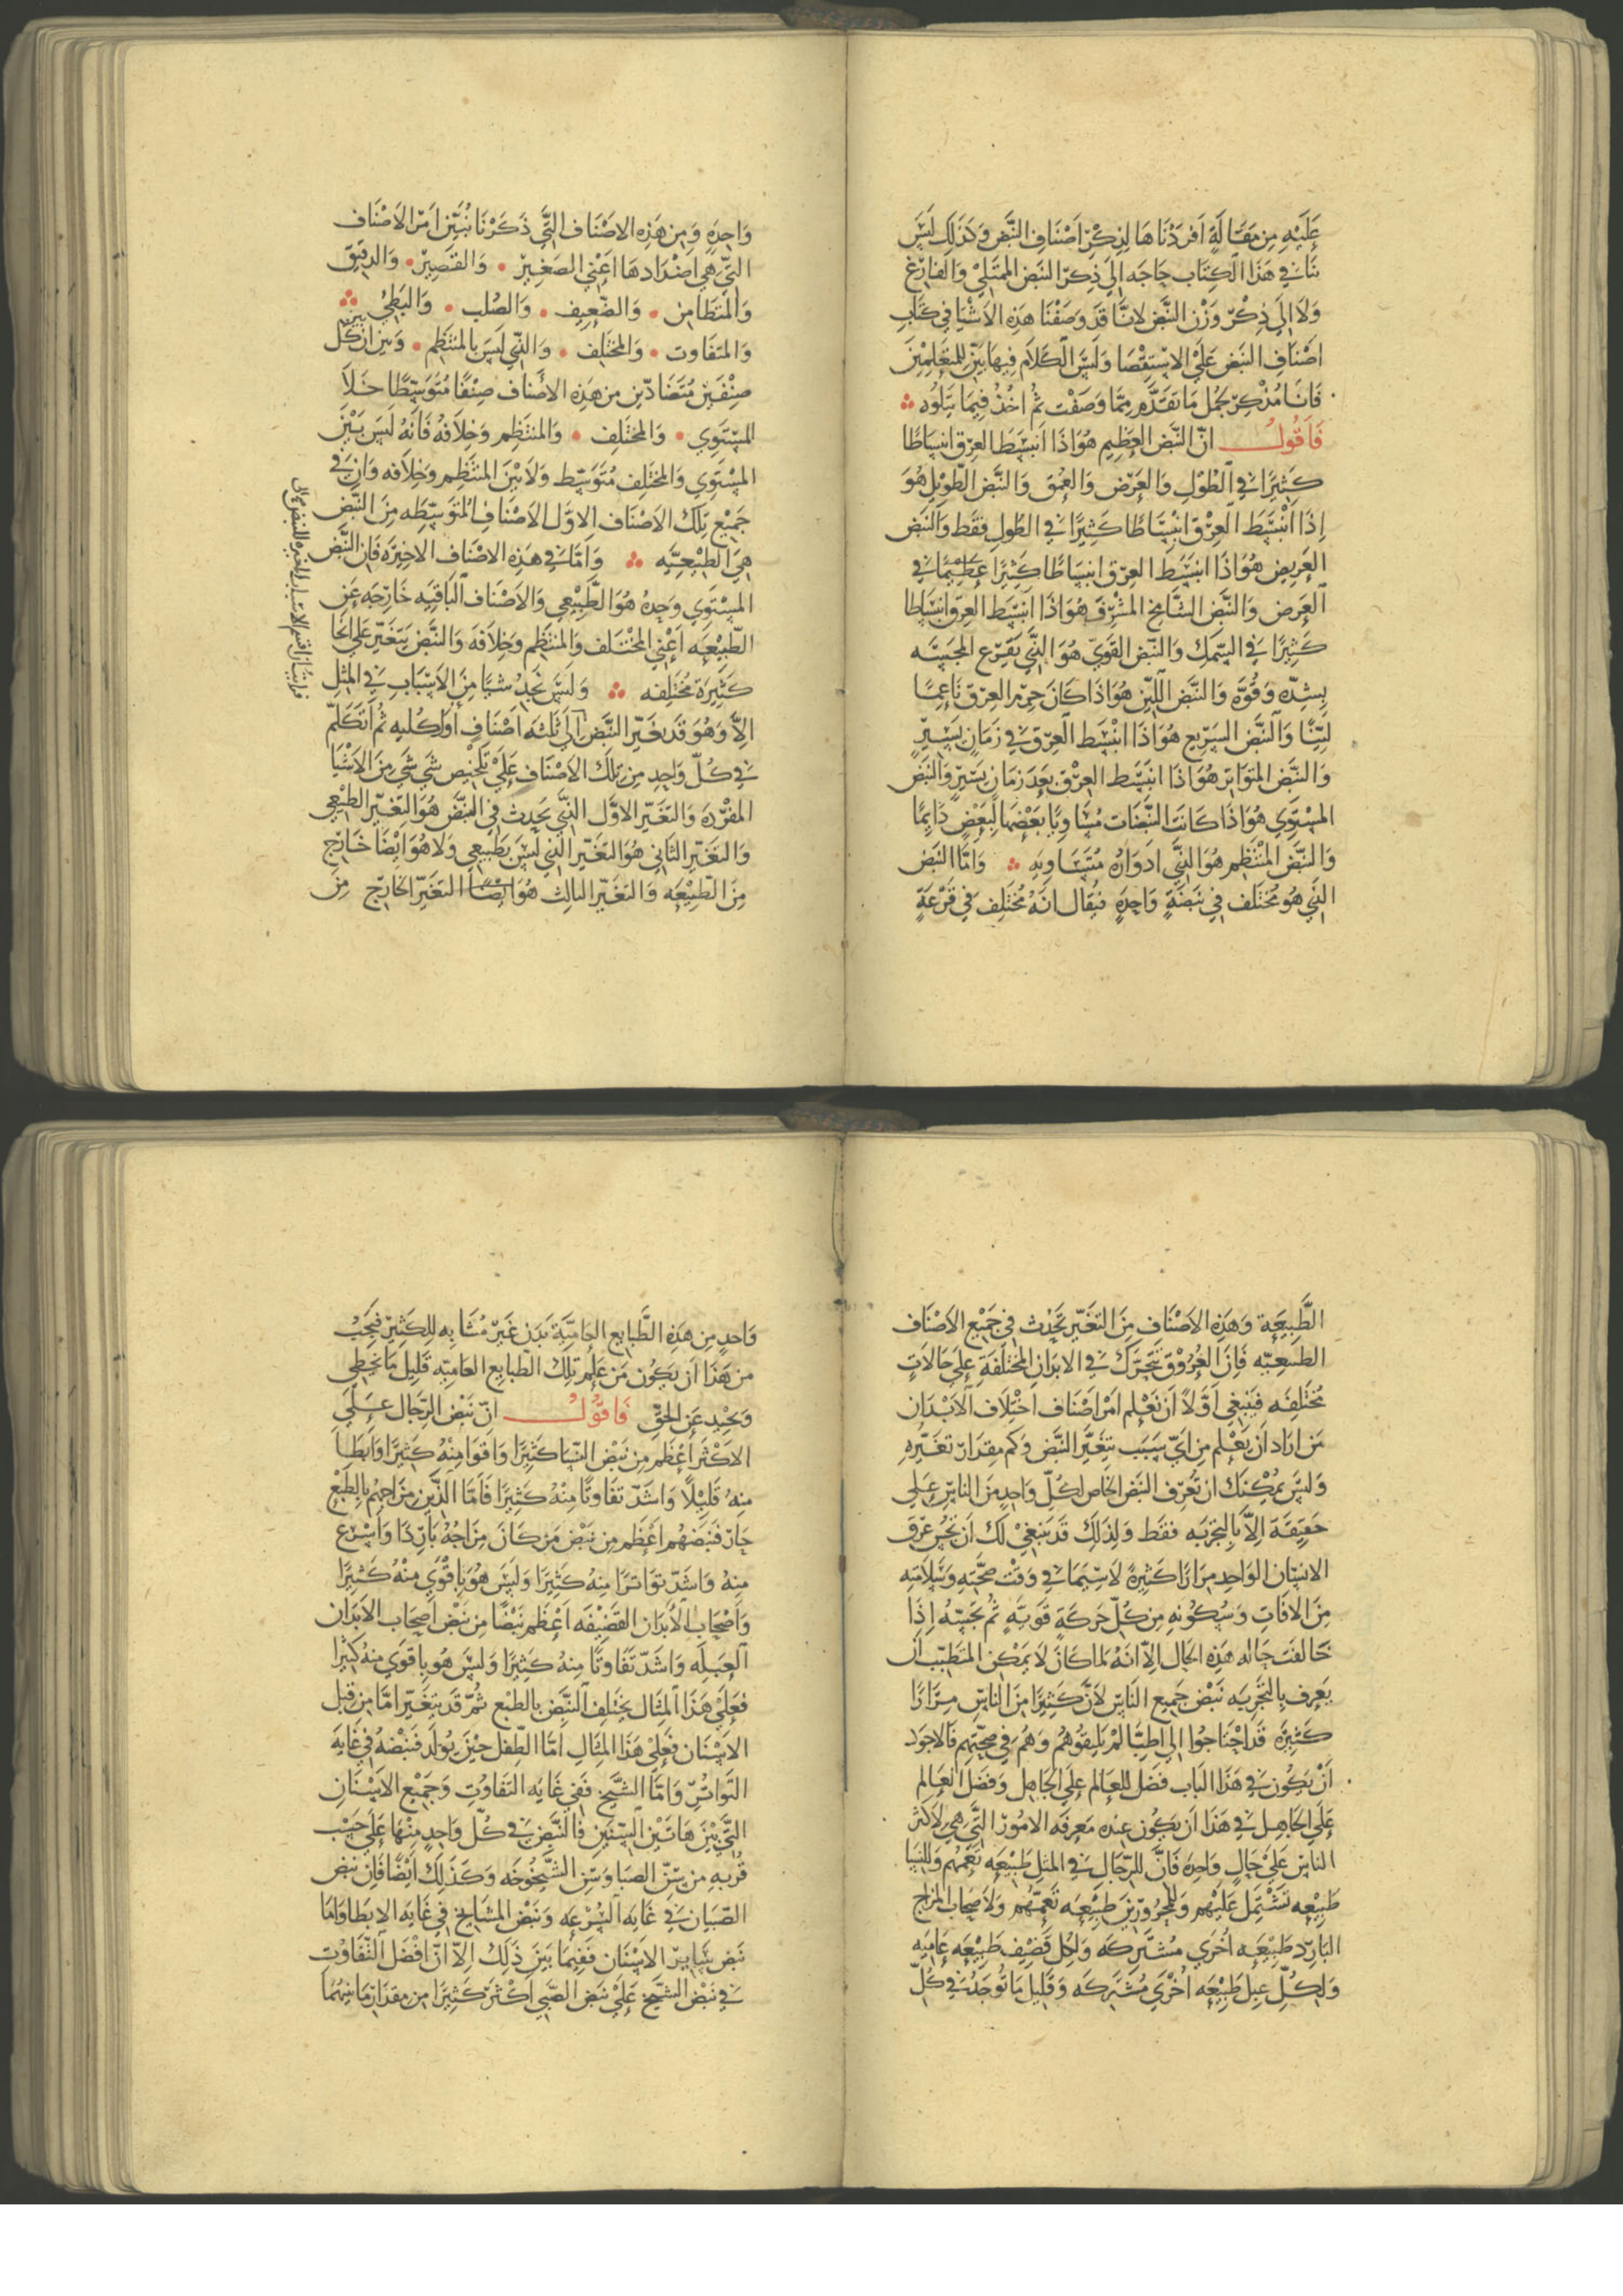 عَلَيْهِ مِن مَقَالَةٍ اَفرَدْنَاهَا لِذِكْرِ اَصْنَافِ النَّبض وَكَذلِكَ لَيْسَ
بنَا في هَذا الكِتَاب حَاجَه اِلَى ذِكرِ النَبض الممتَلِئ وَالفَارِغ
وَلاَ اِلَى ذِكْرِ وَزْن النَّبَض لانَّا قَد وَصَفْنَا هَذِهِ الاَشْيَا في كِتَابِ
اصْنَافِ النَبض عَلَى الاستِقْصَا وَلَيسَ الكَلاَم فِيهَا بَيّنٌ لِلمتعَلِمِيْنَ
فَانَا مُذَكِرٌ جُمَل مَا تَقَدَّم مِمَّا وَصَفْت ثُم اخُذ فِيمَا يَتلُوه
فَاَقُولُ انّ النَّبَض العَظِيم هُوَ اذَا انبَسَطَ العِرق انبِسَاطًا
كَثِيرًا في الطُولِ وَالعَرْضِ وَالعُمق وَالنَّبَض الطّوِيل هُوَ
اِذَا انْبَسَطَ العِرْق انبِسَاطًا كَثِيرًا في الطُولِ فقَط وَالنَبَض
العَرِيض هُوَ اذَا انبَسَط العِرق انبِسَاطًا كَثِيرًا عَظِيمًا في
العَرض وَالنَّبَض الشَّامِخ المشرِق هُوَ اذَا انبَسَط العِرق انبِسَاطا
كَثِيرًا في السّمك وَالنَّبض القَوِيّ هُوَ الذِي يَقرَع المجَسَّه
بِشِدّه وَقُوَّه وَالنَّبَض اللَّيّن هُوَ اذَا كَانَ جِرم العِرق نَاعِمًا
لَيّنًا وَالنَّبَض السَرِيع هُوَ اذَا انْبَسَط العِرق في زَمَان يَسِيرٍ
وَالنَّبَض المتَوَاتر هُوَ اذَا انبَسَط العِرْق بَعدَ زَمَان يَسِيرٍ وَالنَبَض
المسْتَوِي هُوَ اذَا كَانَت النَّبضَات مُسَاويًا بَعْضهَا لِبَعْضٍ دَايمًا
وَالنَّبَض المنْتَظِم هُوَ الذِي ادوَارُه مُتَسَاويه وَامَّا النَبض
الذِي هُو مُختَلف في نَبضَةٍ وَاحِدةٍ فيُقال انهُ مُختَلِف في قَرْعَةٍ
وَاحِدةٍ وَمِن هَذِهِ الاصْنَاف التَّي ذَكَرْنَا نُبَيّن امَر الاَصْنَاف
التَّي هِي اضدَادهَا اعَنِي الصَغِيرْ وَالقَصِيرْ وَالدقِيق
وَالمتَطَامِن وَالضّعِيف وَالصُلب وَالبَطِئْ
وَالمتَفَاوت وَالمختَلف وَالذِي لَيسَ بِالمنتَظِم وَبَين ان كُلّ
صِنْفَين مُتَضَادّين من هَذِهِ الاصْنَاف صِنْفًا مُتَوَسِطًا خَلاَ
المسْتَوِي وَالمختَلِف وَالمنتَظِم وَخِلاَفَهُ فَانهُ لَيسَ بَيْنَ
المسْتَوِي وَالمختَلِف مُتَوسّط وَلاَ بَيْنَ المنتَظِم وخِلاَفه وَان في
جَمِيْع تِلكَ الاَصْنَاف الاوَل الاَصْنَافِ المتَوَسِطَه مِنَ النَبْض
هيَ الطبِيْعِيَّه وَامَّا في هَذِهِ الاصْنَاف الاخِيرَه فَان النَّبَض
المسْتَوِي وَحِدهُ هُوَ الطَّبِيْعِي وَالاَصْنَاف البَاقِيَه خَارِجَه عَن
الطّبِيْعَه اَعْنِي المخْتَلف وَالمنتَظِم وخِلاَفَه وَالنَّبَض يَتَغَيّر عَلَى انحَا
كَثِيرَة مُختَلِفه وَلَيسَ نَجِدُ شيًا مِنَ الاَسْبَابِ في المثِل
الاَّ وَهُوَ قَد يغَيّر النَّبَض الَى ثَلثَه اَصْنَافِ اولَ كُليه ثُم اَتكَلّم
في كُلّ وَاحِدٍ مِن تِلكَ الاَصْنَاف عَلَى تَلخِيص شَي شَي مِنَ الاَشْيَا
المفرَدَه وَالتَغَيّر الاوَّل الذَّي يَحدِث في النبَّض هُوَ التغيّر الطبيْعِي
وَالتَغَيّرِ الثَاني هُوَ التَغَيّر الذِي لَيسَ بَطَبِيعِي وَلا هُوَ اَيْضًا خَارِج
مِنَ الطَّبِيْعَه وَالتغَيّر الثالِث هُوَ ايضًا التغَيّر الخَارِج مِنَ
الطَّبِيعَة وَهَذِهِ الاَصْنَافِ مِنَ التَغَيّر تَحْدْث في جَمِيْع الاَصْنَاف
الطبيعِيّه فَاِنَ العُرُوْق تَتَحَرَّك في الابدَانِ المختَلِفَةِ عَلَى حَالاتٍ
مُختَلِفَه فَيَنبَغِي اَوَّلاً اَن تَعْلم امَر اَصْنَاف اَختْلاَف الاَبْدَان
مَن ارَاد اَن يَعْلم مِن ايّ سَبَب يَتَغَيَّر النَّبَض وَكَم مِقدَار تَغَيّرهِ
وَلَيسَ يمُكنكَ ان تُعَرّف النَبَض الخَاص لِكُلّ وَاحِدٍ مِنَ النَاسِ عَلَى
حَقِيقَة اِلاّ بِالتجربَه فقَط وَلِذَلِكَ قَد يَنبَغِي لَكَ اَن تجُس عِرق
الانسَان الوَاحِد مِرَارًا كَثِيرةً لاَسِيّمَا في وَقْت صِحَّتِهِ وَسَلاَمتِهِ
مِنَ الافَاتِ وَسُكُونهِ مِن كُلّ حَركَةٍ قَويّةٍ ثُم تجسّه اِذَا
خَالفَتْ حَالهُ هَذِهِ الحَال الاّ انهُ لَما كَانَ لاَ يمَكن المتَطَبّب اَن
يَعرِف بِالتَجْربَه نَبْض جَمِيع النَاسِ لاَنَّ كَثِيرًا مِنَ النَاسِ مِرَارًا
كَثِيرَة قَد احْتَاجُوا اِلَى اطِبَّا لَمْ يَلْقَوْهُمْ وَهُم في صِحّتِهِم فَالاجوَد
اَنْ يَكُون في هَذا البَاب فَضْل للعَالم عَلَى الجَاهِلِ وَفضْل العَالِم
عَلَى الجَاهِل في هَذَا اَن يَكُون عِندَه مَعرِفَه الامُور التَّي هي لاَكثَر
النَاس عَلَى حَالٍ وَاحِدَه فَانَّ للرّجَال في المثل طَبِيْعَه تَعُمّهُم وَللنِسَا
طَبِيْعَه تَشْتمَل عَلَيْهِم وَللمحرُورِينَ طَبِيْعَه تَعُمّهُم وَلاَصْحَاب المزَاج
البَارِد طَبِيْعَه اُخْرَى مُشتَركَه وَلِكُلِ قَضِيف طَبِيْعَه عَامِيَه
وَلِكُلِّ عَبِل طَبِيْعَه اُخْرَى مُشْتَركَه وَقَلِيل مَا تُوجَدُ في كُلّ
وَاحِدٍ مِن هَذِهِ الطَّبَايع العَاميَّة بَدَن غَيرُ مُشَابِه لِلكَثِيرِ فَيَجِبُ
من هَذَا اَن يَكُون مَن عَلم تِلكَ الطبَايع العَاميّه قَلِيل مَا يخطي
وَيحِيْد عَن الحَقّ فَاقُولُ انّ نَبْض الرّجَال عَلَى
الاكثَر اَعْظَم مِن نَبْض النّسَا كَثِيرًا وَاقوَا مِنهُ كَثِيرًا وَابَطَا
مِنهُ قَلِيْلاً وَاشَدّ تفَاوتًا مِنْهُ كَثِيرًا فَامَّا الذّين مزَاجهُم بالِطَبْعِ
حَارّ فَنَبَضُهُم اَعْظَم مِن نَبْض مَن كَانَ مِزَاجُهُ بَارِدًا وَاسْرَع
مِنهُ وَاَشَدّ تَوَاترًا مِنهُ كَثِيرًا وَلَيسَ هُوَ بِاقْوَى مِنْهُ كَثِيرًا
وَاَصْحَاب الاَبدَان القَضِيْفَه اَعْظَم نَبْضًا مِن نَبْض اَصْحَاب الاَبدَان
العَبلَه وَاشَدّ تَفَاوتًا مِنهُ كَثِيرًا وَلَيسَ هُو بِاقوَى مِنهُ كَثِيرًا
فَعَلَى هَذَا المِثَال يَختَلِف النَّبَض بِالطَبْع ثُمّ قَد يَتغَيّر امّا مِن قِبَل
الاَسْنَان فَعَلَى هَذَا المِثَالِ امَّا الطِّفْل حِيْنَ يُولَد فَنَبْضهُ في غَايَه
التَّوَاتُر وَامَّا الشَّيخ فَفي غَايَه التَفَاوُتِ وَجَمِيْع الاَسْنَانِ
التَّي بَيْنَ هَاتَيْن السِنّيَن فَالنَّبَض في كُلّ وَاحِدٍ مِنْهَا عَلَى حَسَبِ
قُربهِ مِن سِنّ الصبَا وَسِنّ الشَّيخُوخَه وَكَذَلِكَ اَيْضًا فَاِن نبَض
الصّبيَان في غَايَه السُرْعَه وَنَبْض المشَايخ في غَايَه الابطَا وَامَّا
نَبَض سَاير الاَسْنَان فَفِيمَا بَينَ ذَلِكَ اِلاّ انّ افْضَل التَّفَاوُتِ
في نَبْض الشيَّخ عَلَى نَبَض الصَّبِي اَكْثَر كَثِيرًا مِن مقدَار مَا بَينهُمَا